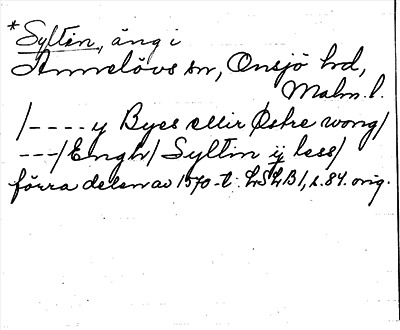 *Syltin, äng i
Ammelövs sn, Onsjö hd,
Malm. l.
/----y Byes ellir Østre wong/
---/Engh/ Syltin ij less/
förra delen av 1570-t. LSLB1, s. 84. orig.